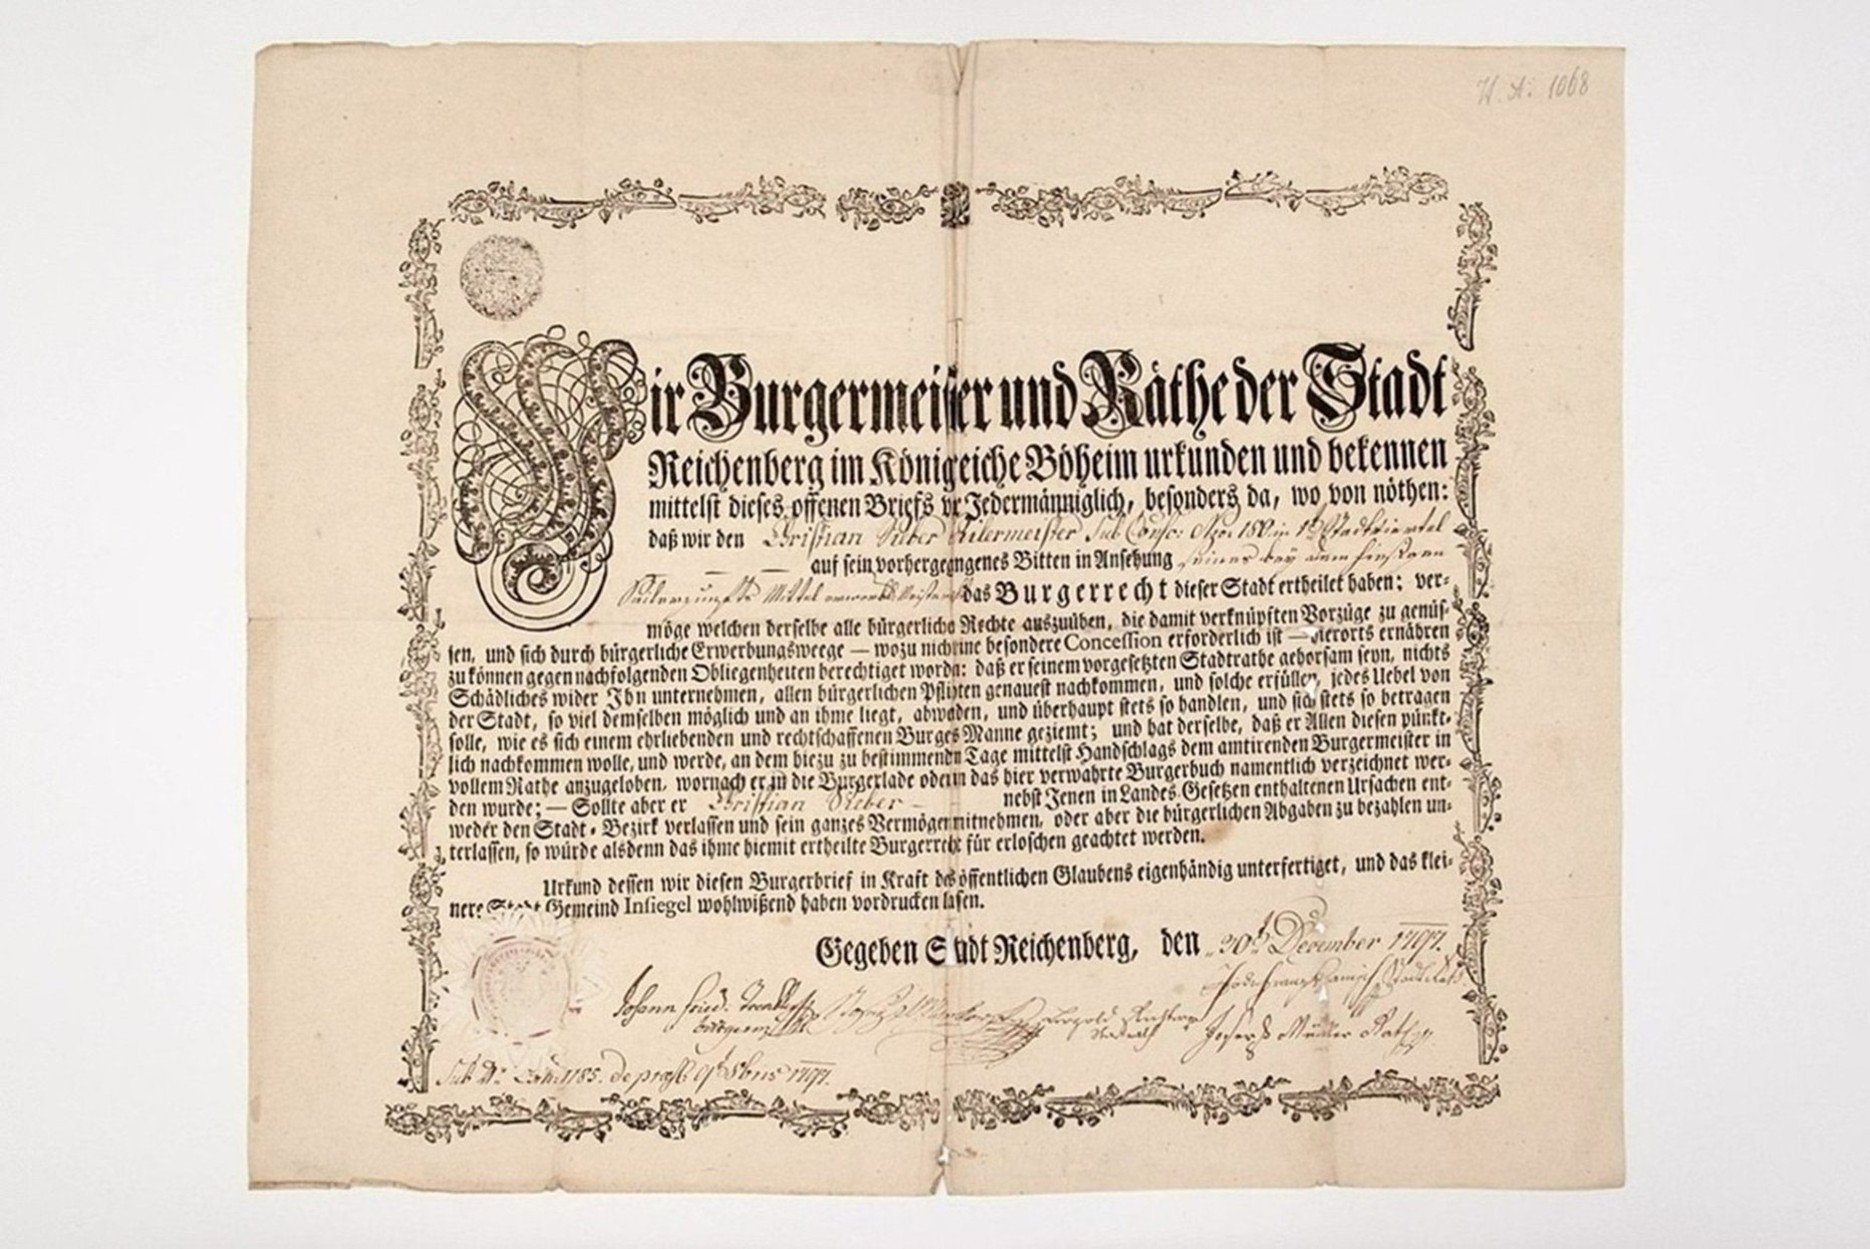 1068
Wir Burgermeister und Räthe der Stadt
Reichenberg im Königreiche Böheim urkunden und bekennen
mittelst dieses offenen Briefs vr Jedermänniglich, besonders da, wo von nöthen:
daß wir den Christian Sieber Seilermeister Sub Consc: Nro. 180 in 1t Stadtviertel
auf sein vorhergegangenes Bitten in Ansehung seines bey einem
das Burgerrecht dieser Stadt ertheilet haben: ver-
möge welchen derselbe alle bürgerliche Rechte auszuüben, die damit verknüpften Vorzüge zu genüs-
sen, und sich durch bürgerliche Erwerbungsweege — wozu nicht eine besondere Concession erforderlich ist — hierorts ernähren
zu können gegen nachfolgenden Obliegenheiten berechtiget worden: daß er seinem vorgesetzten Stadtrathe gehorsam seyn, nichts
Schädliches wider Ihn unternehmen, allen bürgerlichen Pflichten genauest nachkommen, und solche erfüllen, jedes Uebel von
der Stadt, so viel demselben möglich und an ihme liegt, abwenden, und überhaupt stets so handlen, und sich stets so betragen
solle, wie es sich einem ehrliebenden und rechtschaffenen Burges Manne geziemt; und hat derselbe, daß er Allen diesen pünkt-
lich nachkommen wolle, und werde, an dem hiezu zu bestimmenden Tage mittelst Handschlags dem amtirenden Burgermeister in
vollem Rathe anzugeloben, wornach er in die Burgerlade oder in das hier verwahrte Burgerbuch namentlich verzeichnet wer-
den wurde; — Sollte aber er Christian Sieber nebst Jenen in Landes Gesetzen enthaltenen Ursachen ent-
weder den Stadt-Bezirk verlassen und sein ganzes Vermögen mitnehmen, oder aber die bürgerlichen Abgaben zu bezahlen un-
terlassen, so würde alsdenn das ihme hiemit ertheilte Burgerrecht für erloschen geachtet werden.
Urkund dessen wir diesen Burgerbrief in Kraft des öffentlichen Glaubens eigenhändig unterfertiget, und das klei-
nere Stadt Gemeind Insiegel wohlwißend haben vordrucken lassen.
Gegeben Stadt Reichenberg, den 20t December 1797.
Johann Fried.
Leopold
Joseph Müller Rath
1185. de praes. 9t 8bris 1797.